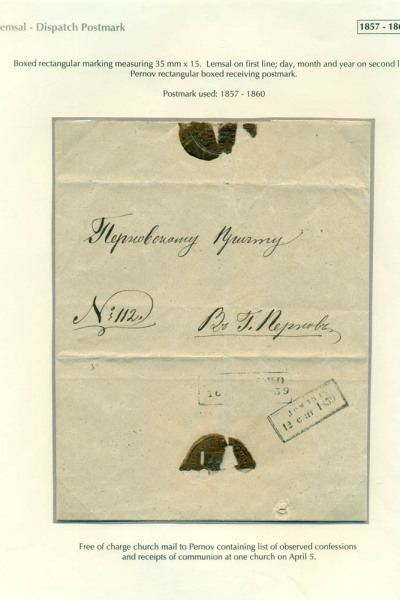 emsal - Dispatch Postmark
1857 - 186
Boxed rectangular marking measuring 35 mm x 15. Lemsal on first line; day, month and year on second l
Pernov rectangular boxed receiving postmark.
Postmark used: 1857 - 1860
Перновскому Причту
№: 112.
Въ Г. Перновъ
59
12 1859
Free of charge church mail to Pernov containing list of observed confessions
and receipts of communion at one church on April 5.